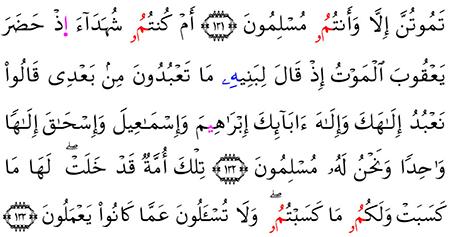 تَمُوتُنَّ إِلَّا وَأَنتُمُۥ مُسْلِمُونَ ۝١٣١ أَمْ كُنتُمُۥ شُهَدَآءَ اِ۪ذْ حَضَرَ
يَعْقُوبَ ٱلْمَوْتُ إِذْ قَالَ لِبَنِيهِۦ مَا تَعْبُدُونَ مِنۢ بَعْدِى قَالُوا۟
نَعْبُدُ إِلَٰهَكَ وَإِلَٰهَ ءَابَآئِكَ إِبْرَٰهِيمَ وَإِسْمَٰعِيلَ وَإِسْحَٰقَ إِلَٰهًا
وَٰحِدًا وَنَحْنُ لَهُۥ مُسْلِمُونَ ۝١٣٢ تِلْكَ أُمَّةٌ قَدْ خَلَتْۖ لَهَا مَا
كَسَبَتْ وَلَكُمُۥ مَا كَسَبْتُمُۥۖ وَلَا تُسْـَٔلُونَ عَمَّا كَانُوا۟ يَعْمَلُونَ ۝١٣٣